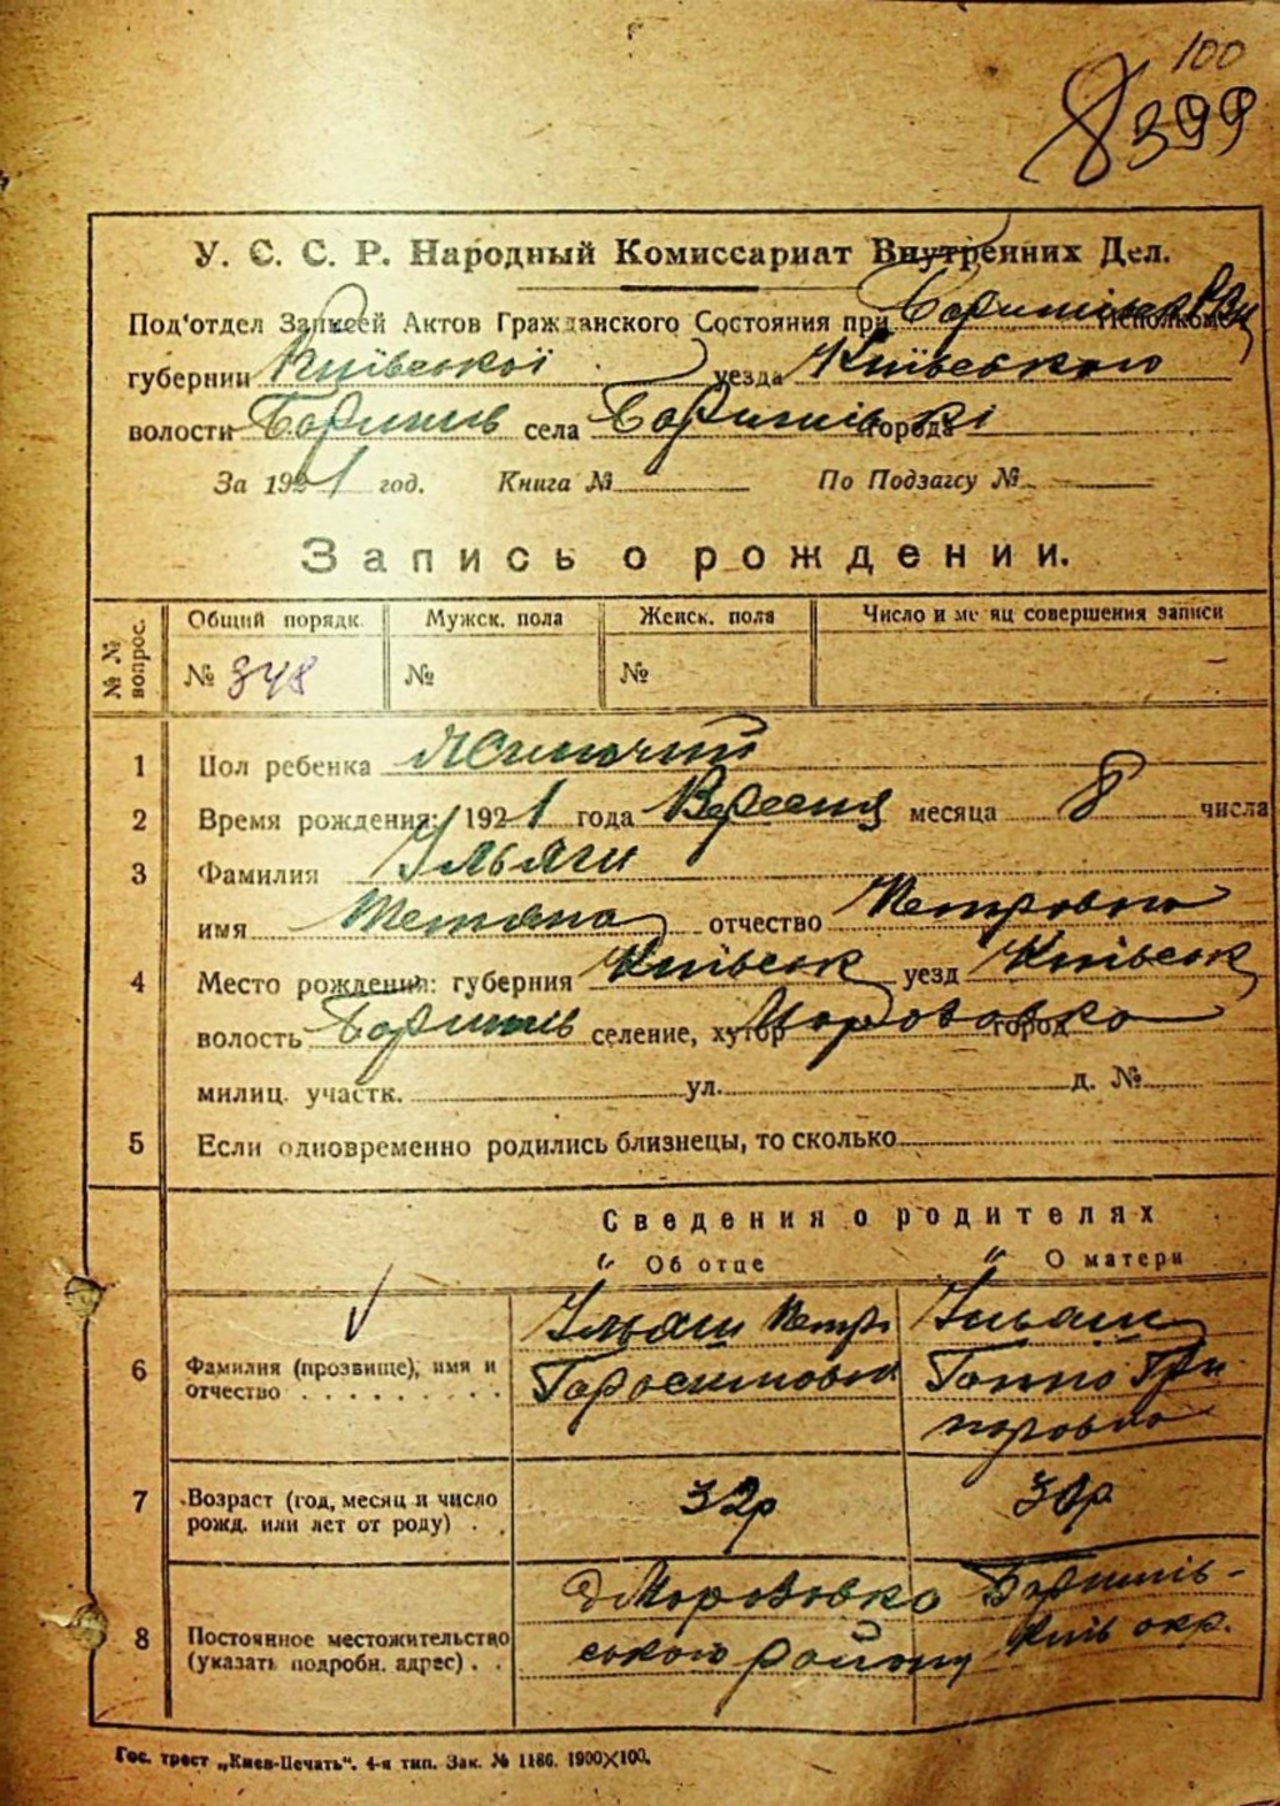 100
8399
У. С. С. Р. Народный Комиссариат Внутренних Дел.
Под'отдел Записей Актов Гражданского Состояния при Исполкоме
губернии Київської уезда Київського
волости села города
За 1921 год. Книга № По Подзагсу №
Запись о рождении.
№ № вопрос. Общий порядк. Мужск. пола Женск. пола Число и месяц совершения записи
№ 348 № №
1 Пол ребенка Жиночий
2 Время рождения: 1921 года Вересня месяца 8 числа
3 Фамилия Ільяш
имя Тетяна отчество Петровна
4 Место рождения: губерния Київськ уезд Київськ
волость селение, хутор город
милиц. участк. ул. д. №
5 Если одновременно родились близнецы, то сколько
Сведения о родителях
" Об отце " О матери
6 Фамилия (прозвище), имя и отчество Ільяш Петро Гарасимович Ільяш Ганна Григоровна
7 Возраст (год, месяц и число рожд. или лет от роду) 32р 30р
8 Постоянное местожительство (указать подробн. адрес) ського району окр.
Гос. трест „Киев-Печать“. 4-я тип. Зак. № 1186. 1900×100.